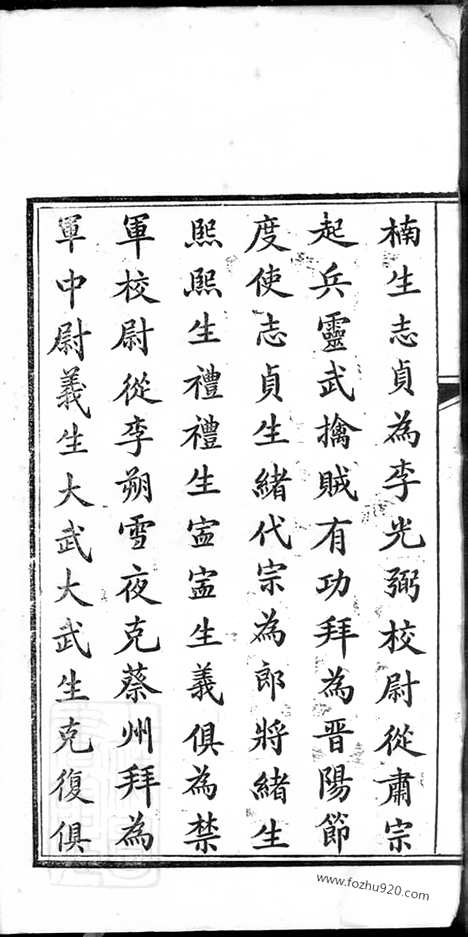 楠生志貞為李光弼校尉從肅宗
起兵靈武擒賊有功拜為晋陽節
度使志貞生緒代宗為郎將緒生
熙熙生禮禮生寍寍生義俱為禁
軍校尉從李朔雪夜克蔡州拜為
軍中尉義生大武大武生克復俱
www.fozhu920.com